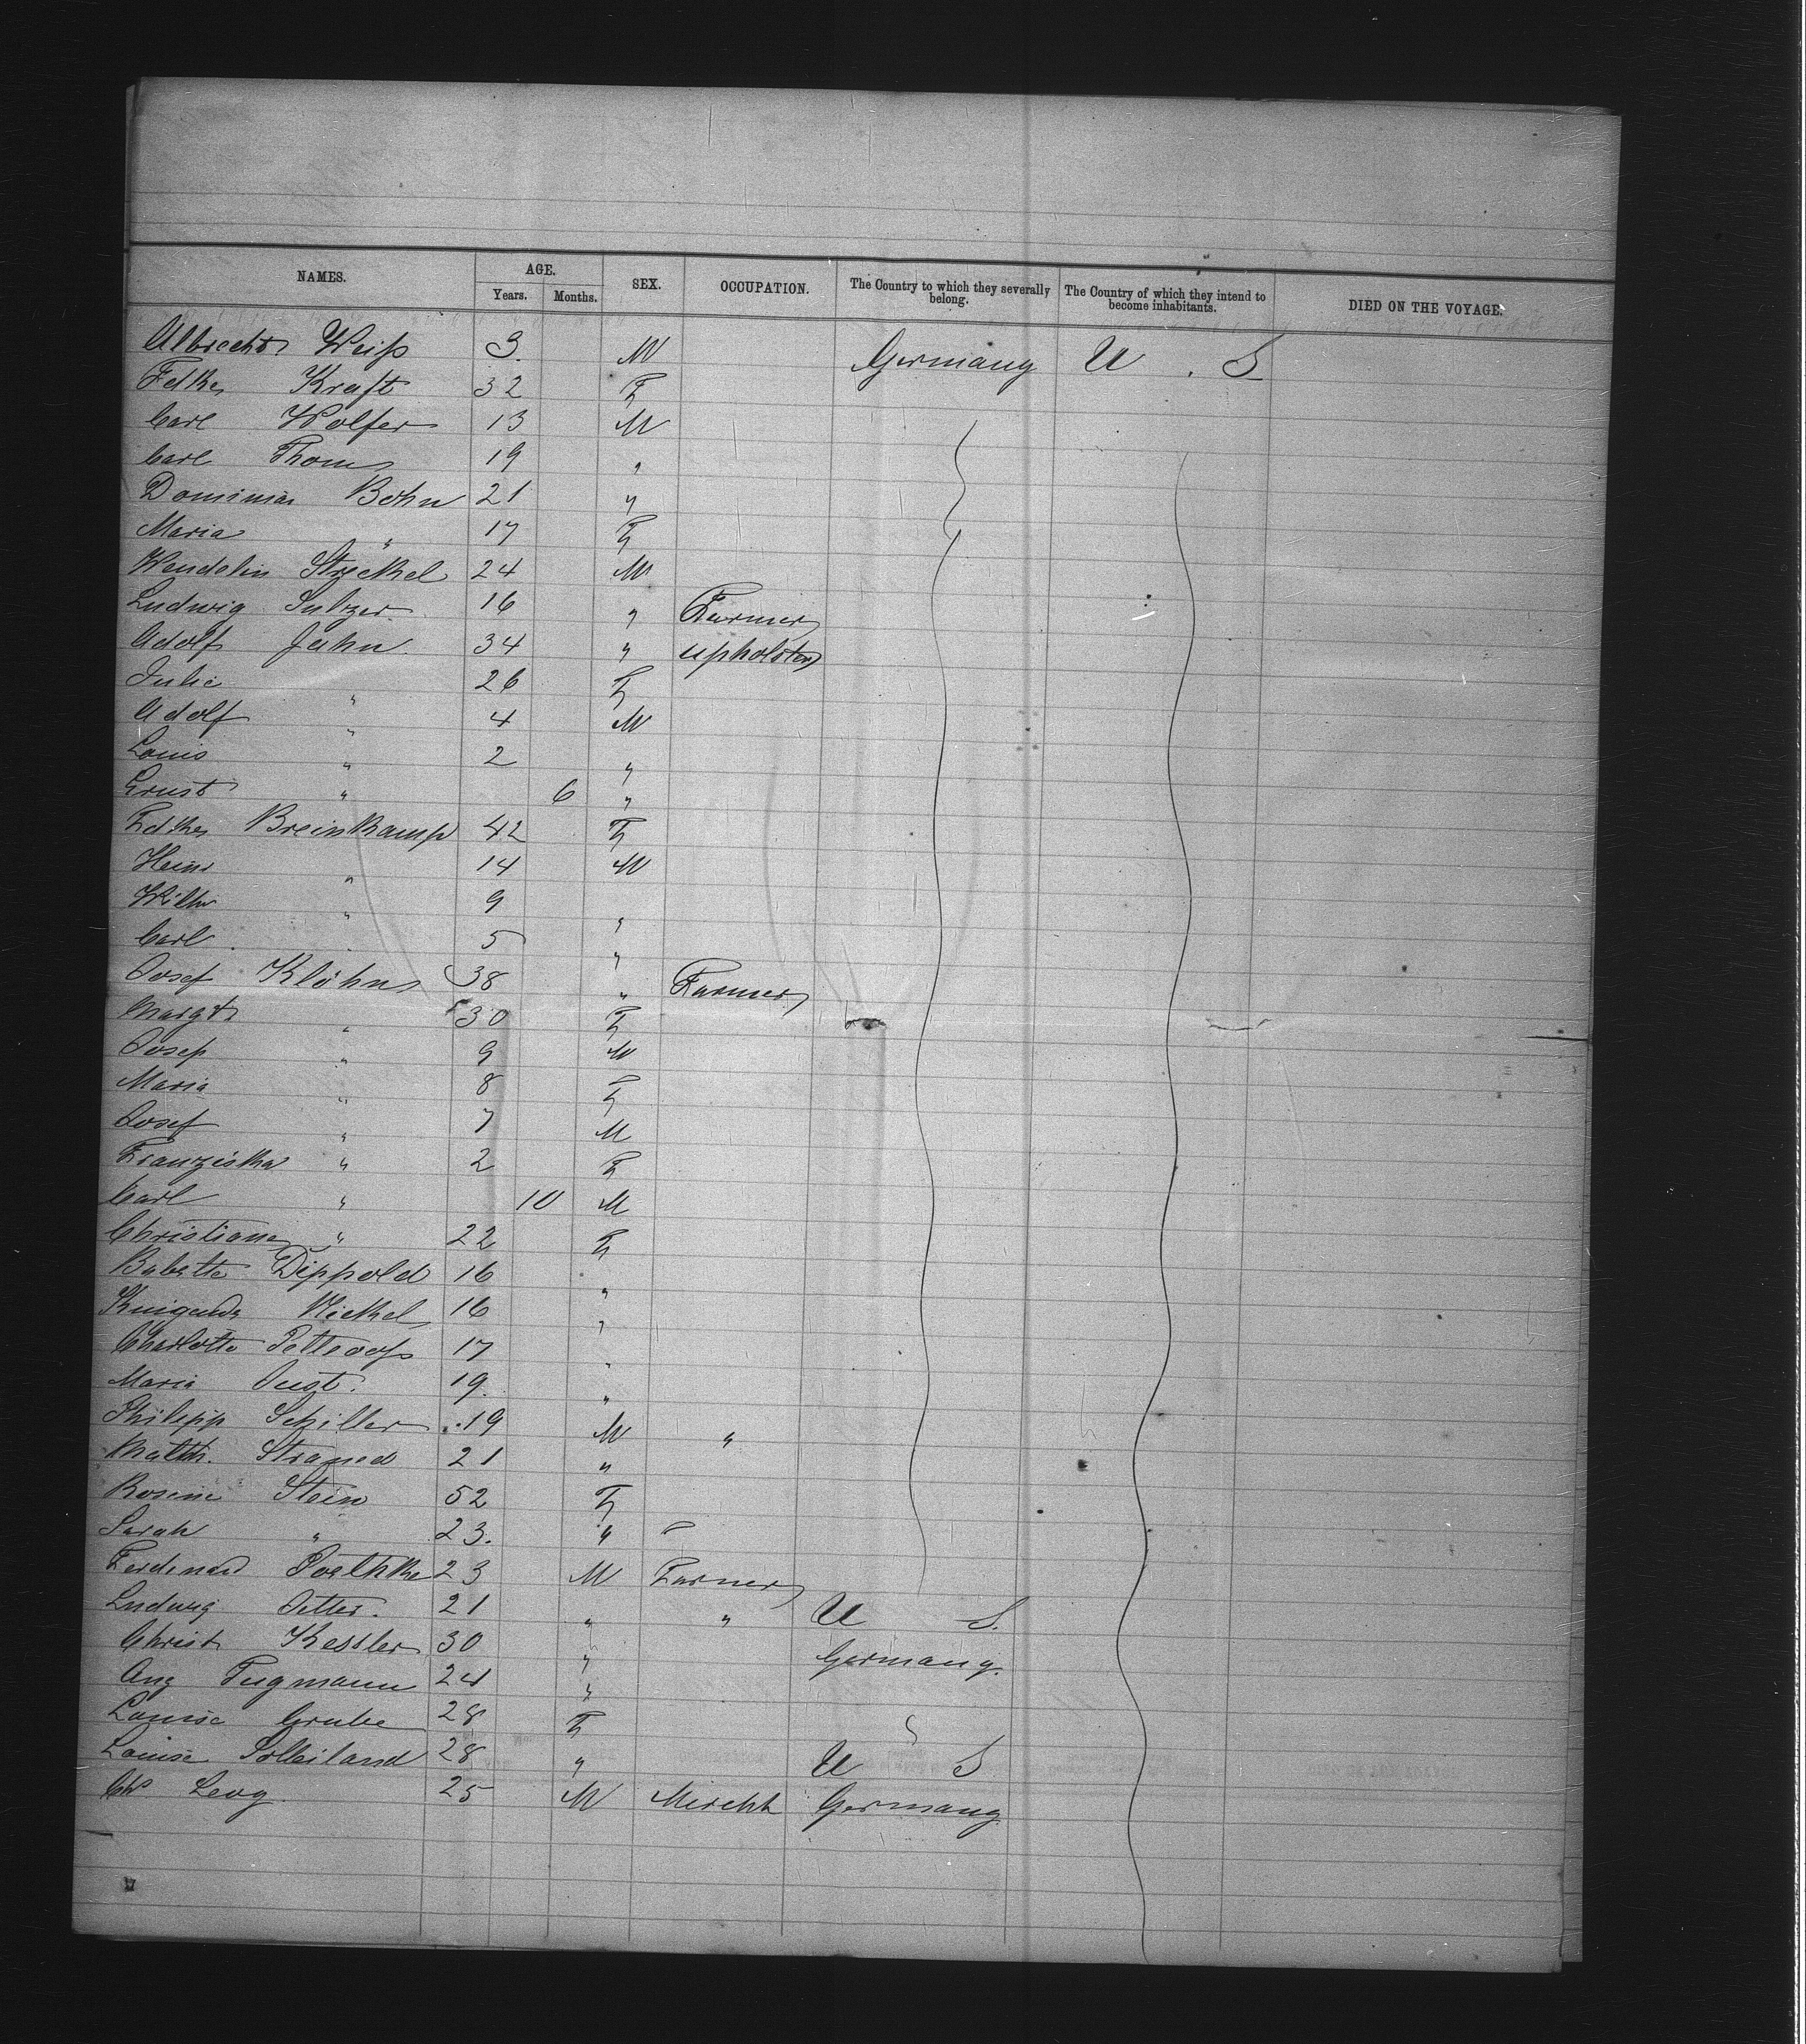 NAMES. AGE. SEX. OCCUPATION. The Country to which they severally belong. The Country of which they intend to become inhabitants. DIED ON THE VOYAGE.
Years. Months.
Albrecht Weiß 3. M Germany U. S
Kraft 32 F
Carl Wolfer 13 M
Carl Thoms 19 "
Bohn 21 "
Maria " 17 F
Wendelin Streckel 24 M
Ludwig Sulzer 16 " Farmer
Adolf Jahn. 34 " upholster
Julie " 26 F
Adolf " 4 M
Louis " 2 "
Ernst " 6 "
Breinkamp 42 F
Heinr " 14 M
Wilhr " 9 "
Carl " 5 "
Josef Klöhn 38 " Farmer
Margt " 30 F
Josep " 9 M
Maria " 8 F
Josef " 7 M
Franziska " 2 F
Carl " 10 M
Christiane " 22 F
Babette Dippold 16 "
Kunigunde Nickel 16 "
Charlotte 17 "
Maria Just. 19. "
Philipp Schiller 19 M "
Math. 21 "
Rosine Stein 52 F
Sarah " 23. "
Ferdinand 23 M Farmer
Ludwig Vetter. 21 " " U S.
Christ Kessler 30 " Germany.
Aug Tugmann 24 "
Louise Grube 28 F "
Louise 28 " U S
25 M Mercht Germany